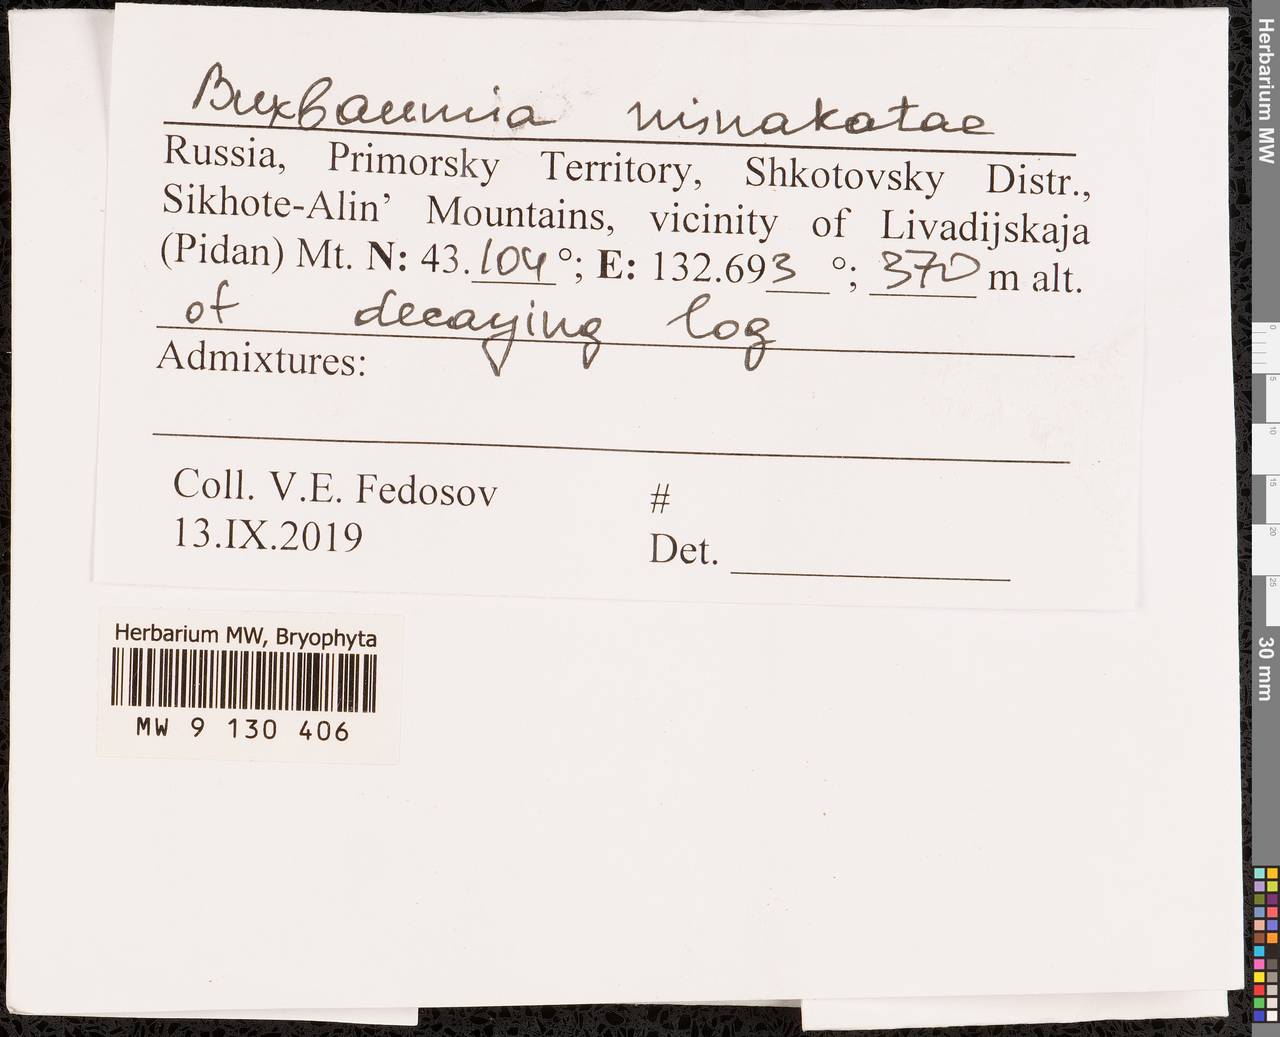 Buxbaumia minakatae
Russia, Primorsky Territory, Shkotovsky Distr.,
Sikhote-Alin’ Mountains, vicinity of Livadijskaja
(Pidan) Mt. N: 43.104°; E: 132.693 °; 370 m alt.
of decaying log
Admixtures:
Coll. V.E. Fedosov #
13.IX.2019 Det.
Herbarium MW, Bryophyta
MW 9 130 406
Herbarium MW
0
5
10
15
20
25
30 mm